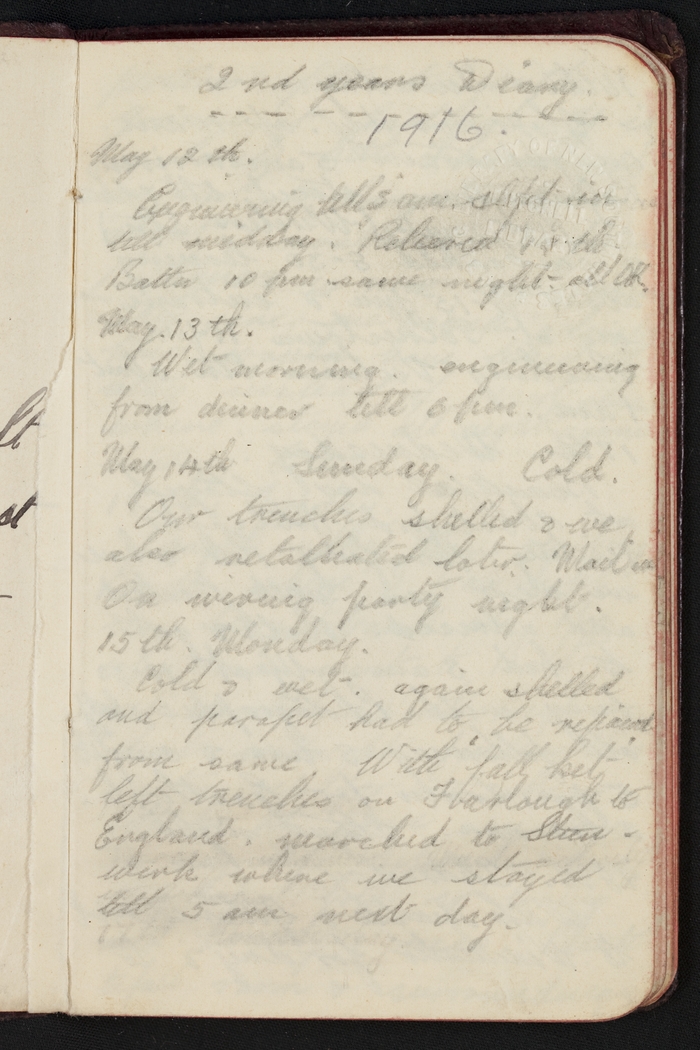 2nd years Diary.
1916.
May 12th.
Engineering till 5 am. slept in
till midday. Releived 14th
Battn 10 pm same night - all OK.
May. 13th.
Wet morning. engineering
from dinner till 6 pm.
May 14th Sunday. Cold.
Our trenches shelled & we
also retalliated later. Mail in
On wiring party night.
15th. Monday.
Cold & wet. again shelled
and parapet had to be repaired
from same With full kit
left trenches on Farlough to
England. marched to Steen-
werk where we stayed
till 5 am next day.
lt
st